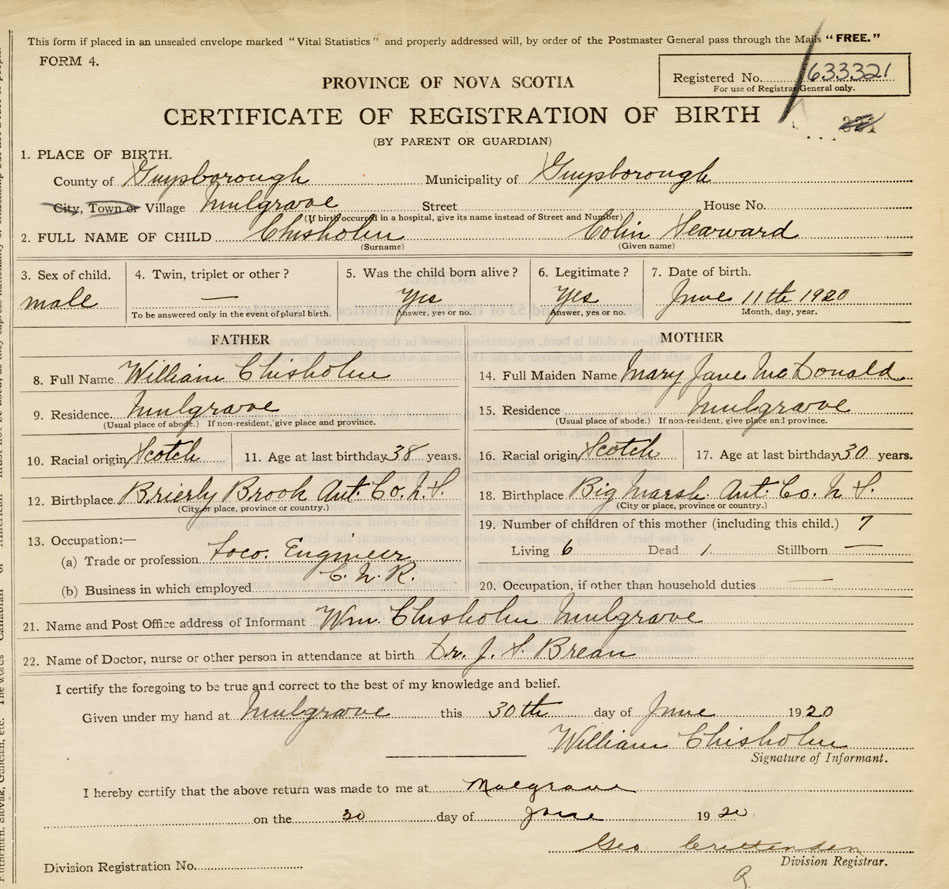 This form if placed in an unsealed envelope marked "Vital Statistics" and properly addressed will, by order of the Postmaster General pass through the Mails "FREE."
FORM 4.
Registered No. 633321
For use of Registrar General only.
PROVINCE OF NOVA SCOTIA
CERTIFICATE OF REGISTRATION OF BIRTH
(BY PARENT OR GUARDIAN)
1. PLACE OF BIRTH.
County of Guysborough Municipality of Guysborough
City, Town or Village Mulgrave Street House No.
(If birth occurred in a hospital, give its name instead of Street and Number)
2. FULL NAME OF CHILD Chisholm Colin Searward
(Surname) (Given name)
3. Sex of child. 4. Twin, triplet or other? 5. Was the child born alive? 6. Legitimate? 7. Date of birth.
male — Yes Yes June 11th 1920
To be answered only in the event of plural birth. Answer, yes or no. Answer, yes or no. Month, day, year.
FATHER MOTHER
8. Full Name William Chisholm 14. Full Maiden Name Mary Jane McDonald
9. Residence. Mulgrave 15. Residence Mulgrave
(Usual place of abode.) If non-resident, give place and province. (Usual place of abode.) If non-resident, give place and province.
10. Racial origin Scotch 11. Age at last birthday 38 years. 16. Racial origin Scotch 17. Age at last birthday 30 years.
12. Birthplace Brierly Brook Ant. Co. N.S. 18. Birthplace Big Marsh Ant. Co. N.S.
(City or place, province or country.) (City or place, province or country.)
13. Occupation:— 19. Number of children of this mother (including this child.) 7
(a) Trade or profession Loco. Engineer Living 6 Dead 1. Stillborn —
(b) Business in which employed C.N.R. 20. Occupation, if other than household duties —
21. Name and Post Office address of Informant Wm. Chisholm Mulgrave
22. Name of Doctor, nurse or other person in attendance at birth Dr. J. S. Brean
I certify the foregoing to be true and correct to the best of my knowledge and belief.
Given under my hand at Mulgrave this 30th day of June 1920
William Chisholm
Signature of Informant.
I hereby certify that the above return was made to me at Mulgrave
on the 30 day of June 1920
Geo Crittenden
Division Registration No. Division Registrar.